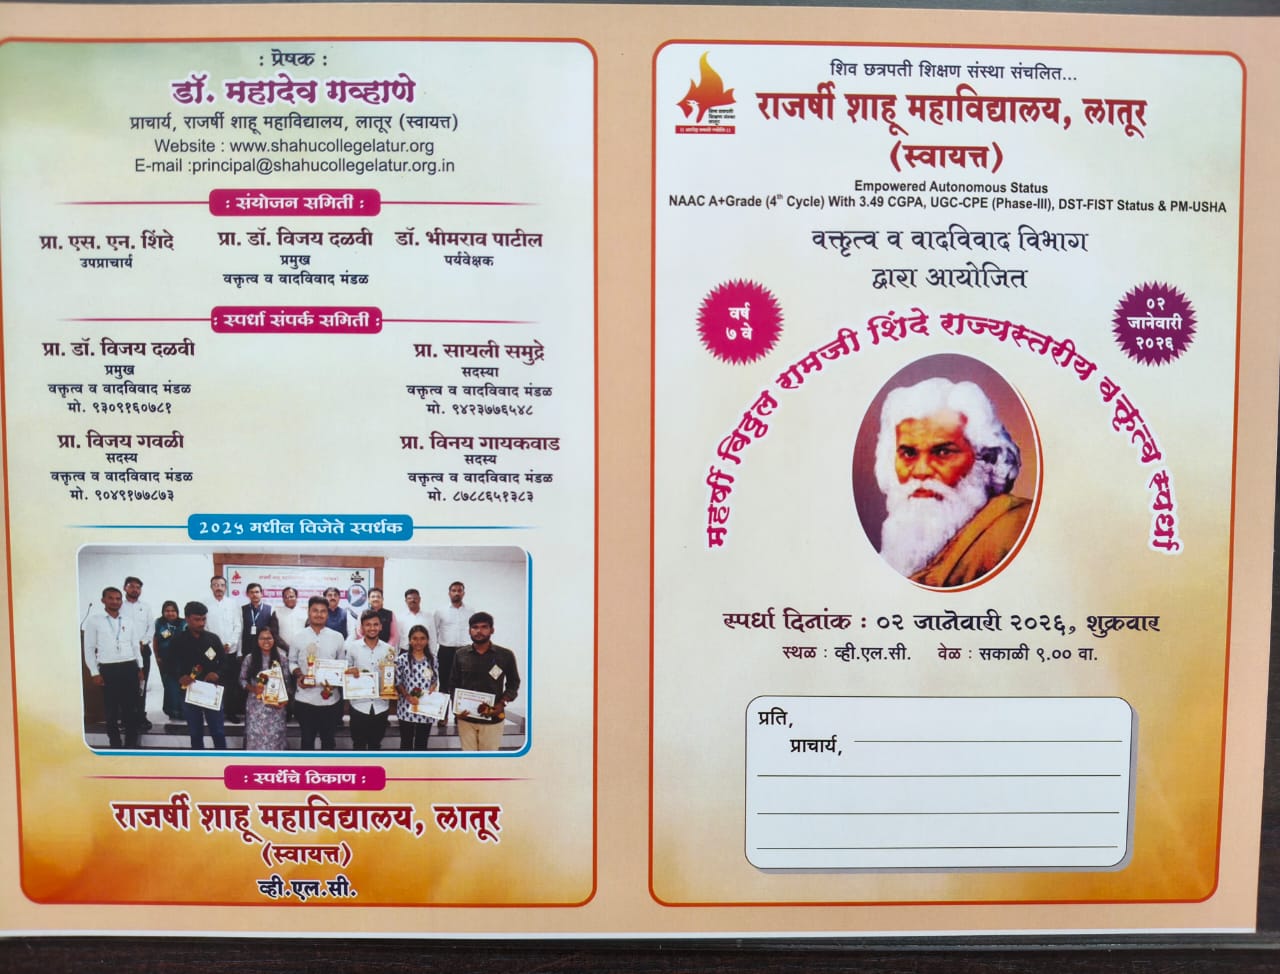 : प्रेषक :
डॉ. महादेव गव्हाणे
प्राचार्य, राजर्षी शाहू महाविद्यालय, लातूर (स्वायत्त)
Website : www.shahucollegelatur.org
E-mail :principal@shahucollegelatur.org.in
: संयोजन समिती :
प्रा. एस. एन. शिंदे
उपप्राचार्य
प्रा. डॉ. विजय दळवी
प्रमुख
वक्तृत्व व वादविवाद मंडळ
डॉ. भीमराव पाटील
पर्यवेक्षक
: स्पर्धा संपर्क समिती :
प्रा. डॉ. विजय दळवी
प्रमुख
वक्तृत्व व वादविवाद मंडळ
मो. ९३०९१६०७८१
प्रा. सायली समुद्रे
सदस्या
वक्तृत्व व वादविवाद मंडळ
मो. ९४२३७७६५४८
प्रा. विजय गवळी
सदस्य
वक्तृत्व व वादविवाद मंडळ
मो. ९०४९१७७८७३
प्रा. विनय गायकवाड
सदस्य
वक्तृत्व व वादविवाद मंडळ
मो. ८७८८६५१३८३
2025 मधील विजेते स्पर्धक
: स्पर्धेचे ठिकाण :
राजर्षी शाहू महाविद्यालय, लातूर
(स्वायत्त)
व्ही.एल.सी.
शिव छत्रपती शिक्षण संस्था संचलित...
राजर्षी शाहू महाविद्यालय, लातूर
(स्वायत्त)
Empowered Autonomous Status
NAAC A+Grade (4th Cycle) With 3.49 CGPA, UGC-CPE (Phase-III), DST-FIST Status & PM-USHA
वक्तृत्व व वादविवाद विभाग
द्वारा आयोजित
वर्ष
७ वे
०२
जानेवारी
२०२६
महर्षी विठ्ठल रामजी शिंदे राज्यस्तरीय वक्तृत्व स्पर्धा
स्पर्धा दिनांक : ०२ जानेवारी २०२६, शुक्रवार
स्थळ : व्ही.एल.सी. वेळ : सकाळी ९.०० वा.
प्रति,
प्राचार्य,